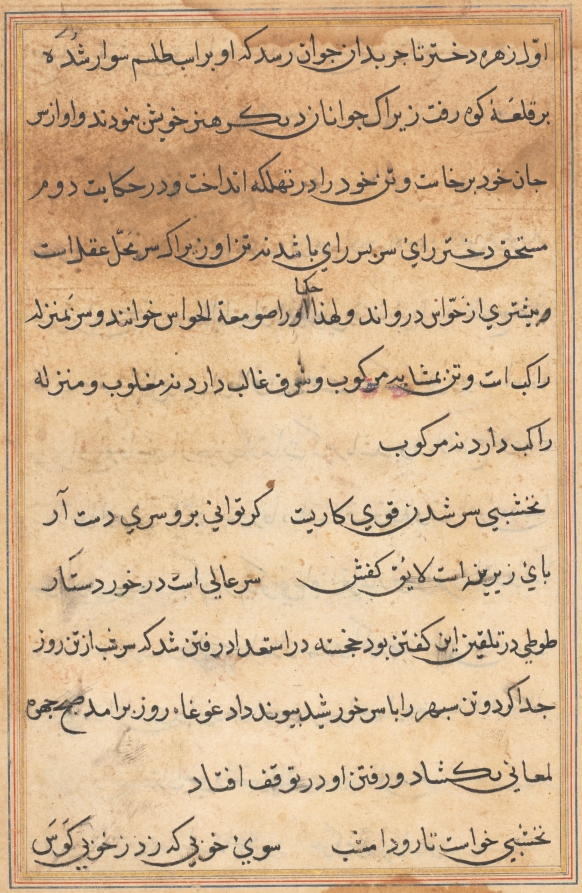 اوّل زهره دختر تاجر بدان جوان رسد که او بر اسب طلسم سوار شده
بر قلعهٔ کوه رفت زیراک جوانان دیگر هنر خویش نمودند و او از سر
جان خود برخاست و تن خود را در تهلکه انداخت و در حکایت دوم
مستحق دختر رای سر پسر رای باشد نه تن او زیراکه سر محلّ عقل است
و بیشتری از حوّاس درو اند و لهذا حکما او را صومعة الحواس خوانند و سر بمنزله
راکب است و تن بمثابه مرکوب و شرف غالب دارد نه مغلوب و منزله
راکب دارد نه مرکوب
نخشبی سر شدن قوی کاریت گر توانی برو سری دست آر
پای زیرینه است لایق کفش سر عالی است در خورد ستار
طوطی در تلقین این گفتن بود خجسته در استعداد رفتن شد که سر شب از تن روز
جدا کرد و تن سپهر را با سر خورشید پیوند داد غوغاء روز برامد صبح چهره
لمعانی بکشاد و رفتن او در توقف افتاد
نخشبی خواست تا رود امشب سوی خوبی که زد ز خوبی کوس